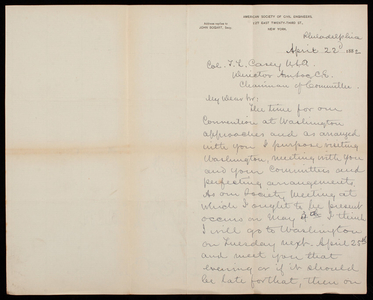 AMERICAN SOCIETY OF CIVIL ENGINEERS
127 EAST TWENTY-THIRD ST.,
NEW YORK.
Address replies to
JOHN BOGART, Sec.
Philadelphia
April 22d 1882
Col. T. L. Casey USA
Director Am Soc C.E.
Chairman of Committee.
My dear Sir;
The time for our
Convention at Washington
approaches and as arranged
with you I purpose visiting
Washington, meeting with you
and your Committee and
perfecting arrangements.
As our Society Meeting at
which I ought to be present
occurs on May I think
I will go to Washington
on Tuesday next. April 25th
and meet you that
evening or if it should
be late for that, then on